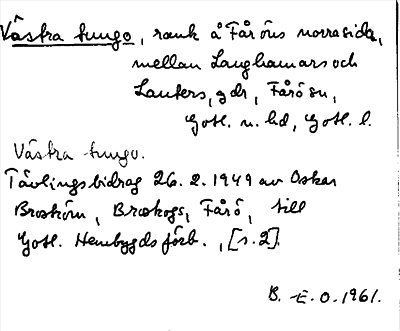 Västra tungo, rauk å Fåröns norra sida,
mellan Langhamars och
Lauters, gdr, Fårö sn,
Gotl. n. hd, Gotl. l.
Västra tungo.
Tävlingsbidrag 26.2.1949 av Oskar
Broström, Broskogs, Fårö, till
Gotl. Hembygdsförb., [s.2].
B. E. O. 1961.